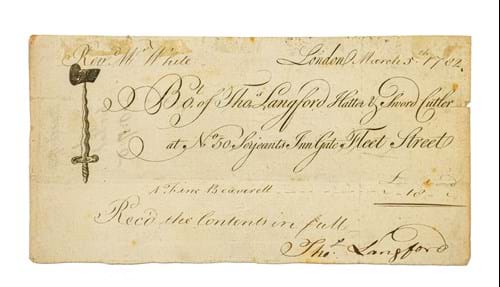 Rev. Mr White London March 5th 1782
Bot. of Thos. Langford Hatter & Sword Cutler
at No. 50 Serjeants Inn Gate Fleet Street
£
Beaverett 18
Rec'd the Contents in full
Thos. Langford